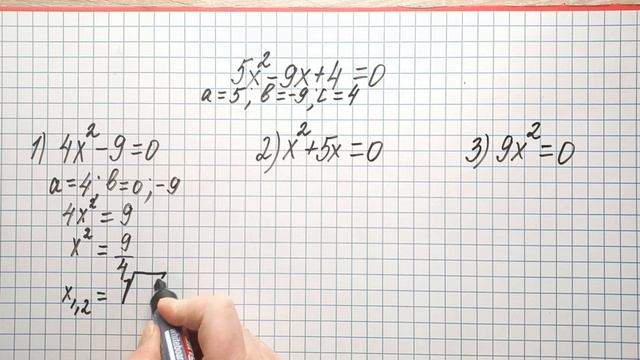 5x² - 9x + 4 = 0
a = 5; b = -9; c = 4
1) 4x² - 9 = 0
a = 4; b = 0; -9
4x² = 9
x² = 9/4
x₁,₂ = √
2) x² + 5x = 0
3) 9x² = 0